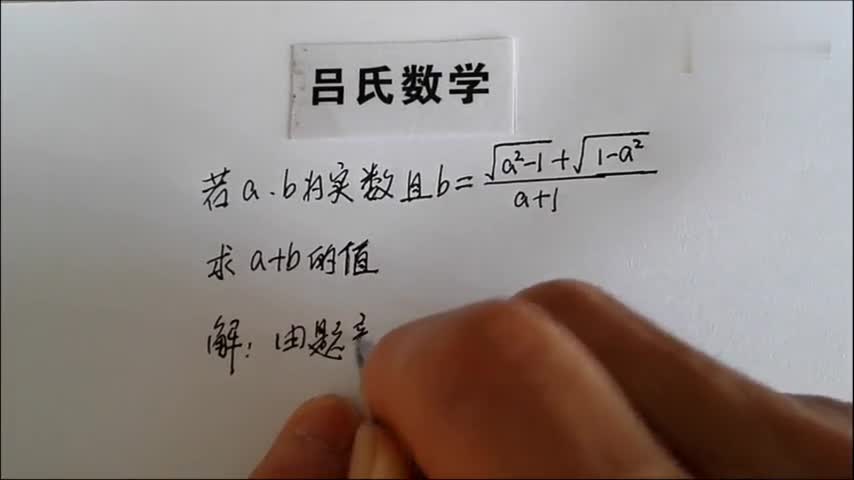 吕氏数学
若a.b为实数且b=\frac{\sqrt{a^2-1}+\sqrt{1-a^2}}{a+1}
求a+b的值
解:由题